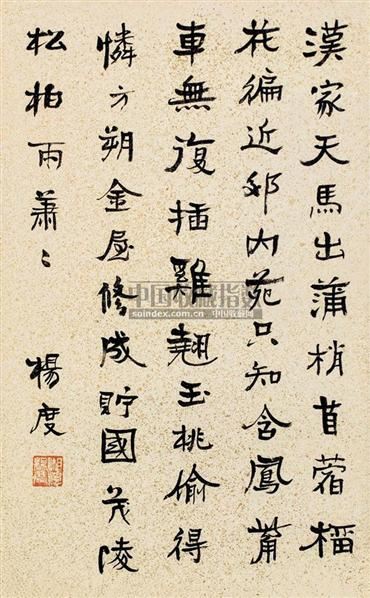 漢家天馬出蒲梢苜蓿榴
花徧近郊內苑只知含鳳
車無復插雞翹玉桃偷得
憐方朔金屋修成貯國茂陵
松柏雨蕭〻
楊度
中国收藏指数
soindex.com.cn 中国收藏网